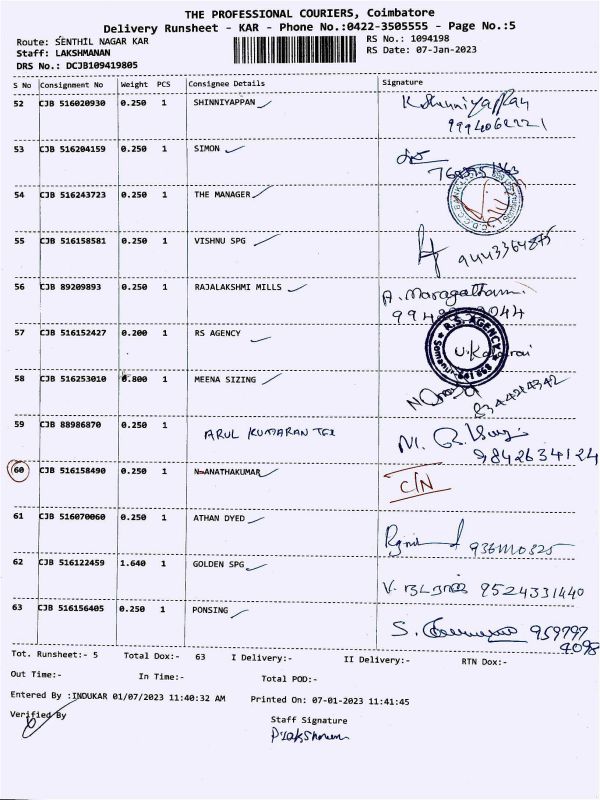 THE PROFESSIONAL COURIERS, Coimbatore
Delivery Runsheet - KAR - Phone No.:0422-3505555 - Page No.:5
Route: SENTHIL NAGAR KAR RS No.: 1094198
Staff: LAKSHMANAN RS Date: 07-Jan-2023
DRS No.: DCJB109419805
S No Consignment No Weight PCS Consignee Details Signature
52 CJB 516020930 0.250 1 SHINNIYAPPAN
53 CJB 516204159 0.250 1 SIMON
54 CJB 516243723 0.250 1 THE MANAGER
55 CJB 516158581 0.250 1 VISHNU SPG
56 CJB 89209893 0.250 1 RAJALAKSHMI MILLS A. Maragatham
57 CJB 516152427 0.200 1 RS AGENCY R.S. AGENCY
58 CJB 516253010 0.800 1 MEENA SIZING 8344214342
59 CJB 88986870 0.250 1 ARUL KUMARAN TEX 9842634124
60 CJB 516158490 0.250 1 N-ANATHAKUMAR C/N
61 CJB 516070060 0.250 1 ATHAN DYED
62 CJB 516122459 1.640 1 GOLDEN SPG 9524331440
63 CJB 516156405 0.250 1 PONSING S. 959797
4098
Tot. Runsheet:- 5 Total Dox:- 63 I Delivery:- II Delivery:- RTN Dox:-
Out Time:- In Time:- Total POD:-
Entered By :INDUKAR 01/07/2023 11:40:32 AM Printed On: 07-01-2023 11:41:45
Verified By Staff Signature